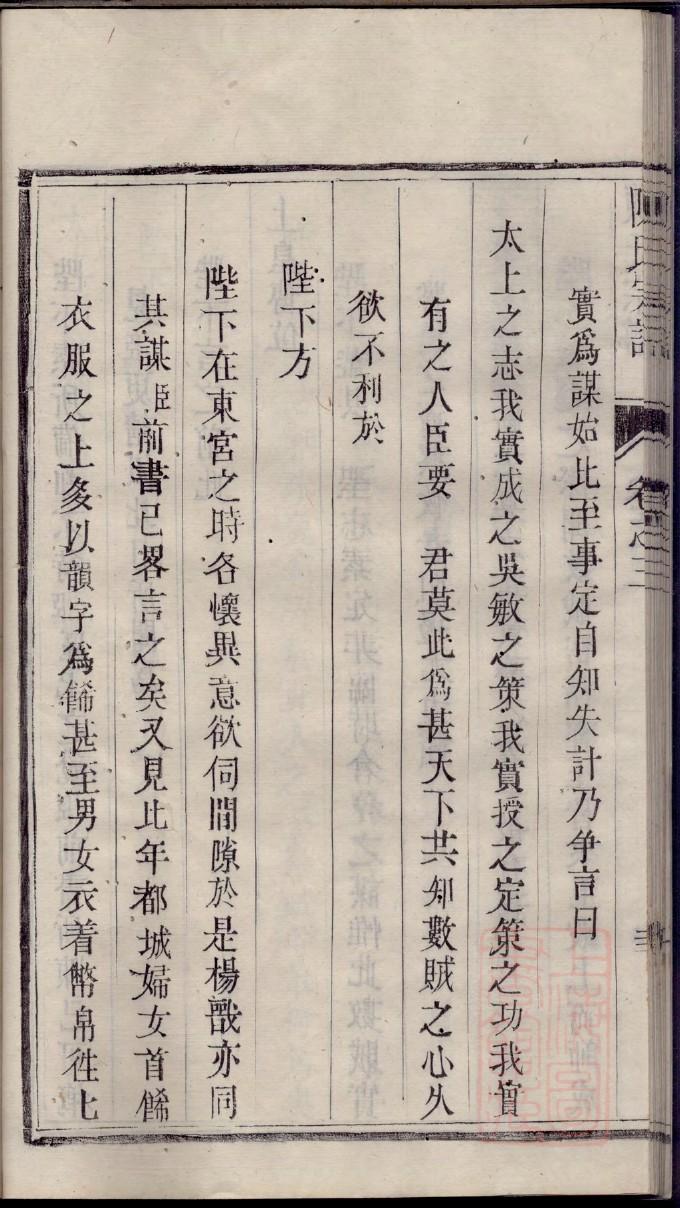 陳氏宗譜 卷之三
實爲謀始比至事定自知失計乃爭言曰
太上之志我實成之吳敏之策我實授之定策之功我實
有之人臣要 君莫此爲甚天下共知數賊之心久
欲不利於
陛下方
陛下在東宮之時各懷異意欲伺間隙於是楊戩亦同
其謀臣前書已畧言之矣又見比年都城婦女首餙
衣服之上多以韻字爲餙甚至男女衣着幣帛徃比